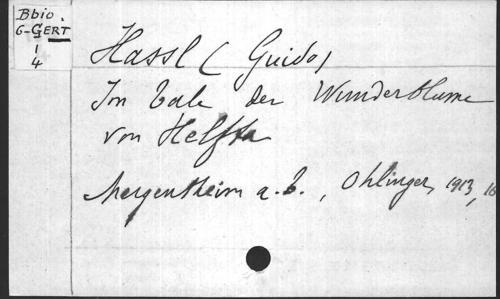 Bbio.
G-GERT
1
4
Hassl (Guido)
Im Tale der Wunderblume
von Helfta
Mergentheim a. T., Ohlinger, 1913, 16